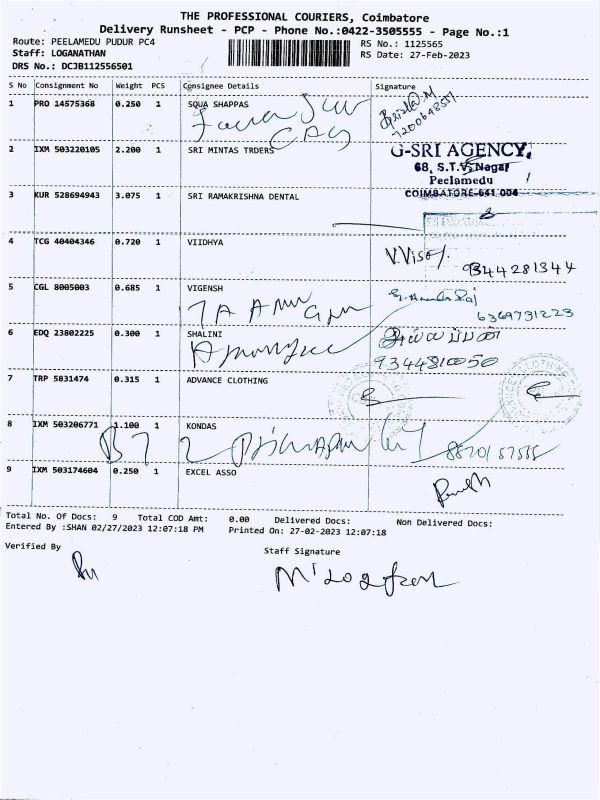 THE PROFESSIONAL COURIERS, Coimbatore
Delivery Runsheet - PCP - Phone No.:0422-3505555 - Page No.:1
Route: PEELAMEDU PUDUR PC4 RS No.: 1125565
Staff: LOGANATHAN RS Date: 27-Feb-2023
DRS No.: DCJB112556501
S No Consignment No Weight PCS Consignee Details Signature
1 PRO 14575368 0.250 1 SQUA SHAPPAS
7200648557
2 IXM 503220105 2.200 1 SRI MINTAS TRDERS
G-SRI AGENCY,
68, S.T.V. Nagar
Peelamedu
COIMBATORE-641 004
3 KUR 528694943 3.075 1 SRI RAMAKRISHNA DENTAL
4 TCG 40404346 0.720 1 VIIDHYA
9344281344
5 CGL 8005003 0.685 1 VIGENSH
6369731223
6 EDQ 23802225 0.300 1 SHALINI
9344810050
7 TRP 5831474 0.315 1 ADVANCE CLOTHING
8 IXM 503206771 1.100 1 KONDAS
9 IXM 503174604 0.250 1 EXCEL ASSO
Total No. Of Docs: 9 Total COD Amt: 0.00 Delivered Docs: Non Delivered Docs:
Entered By :SHAN 02/27/2023 12:07:18 PM Printed On: 27-02-2023 12:07:18
Verified By Staff Signature